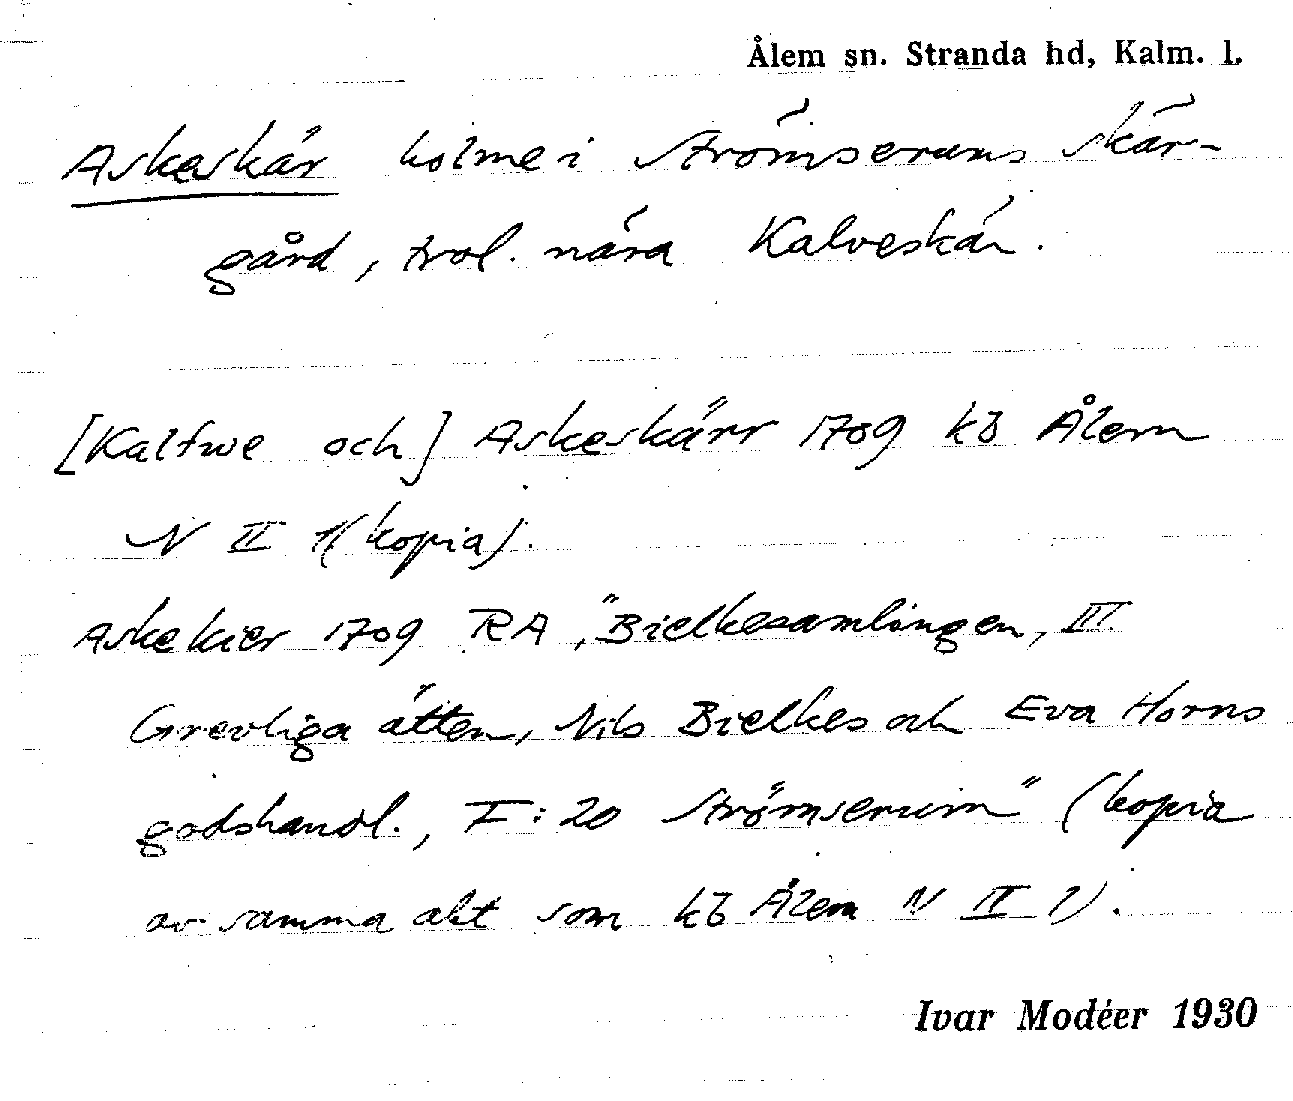 Ålem sn. Stranda hd, Kalm. l.
Askeskär holme i Strömserums skär-
gård, trol. nära Kalveskär.
[Kalfwe och] Askeskärr 1709 kb Ålem
N II 1 (kopia).
Askekier 1709 RA, "Bielkesamlingen, III
Grevliga ätten, Nils Bielkes och Eva Horns
godshandl., F:20 Strömserum" (kopia
av samma akt som kb Ålem N II 1).
Ivar Modéer 1930